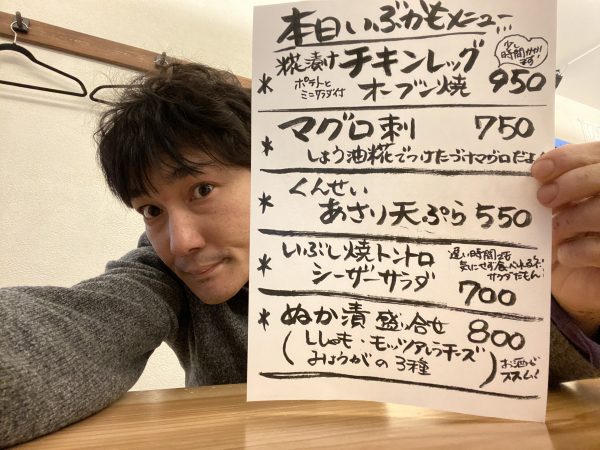 本日いぶかもメニュー
糀漬けチキンレッグ
少し時間かかります
ポテトとミニサラダ付
オーブン焼 950
マグロ刺 750
しょう油糀でつけたづけマグロだよ
くんせい
あさり天ぷら 550
いぶし焼トントロ
シーザーサラダ 700
遅い時間でも
気にせず食べれるぞ!
サラダだもん!
ぬか漬 盛り合せ 800
(ししゃも・モッツアレラチーズ
みょうがの3種)
お酒がススムよ